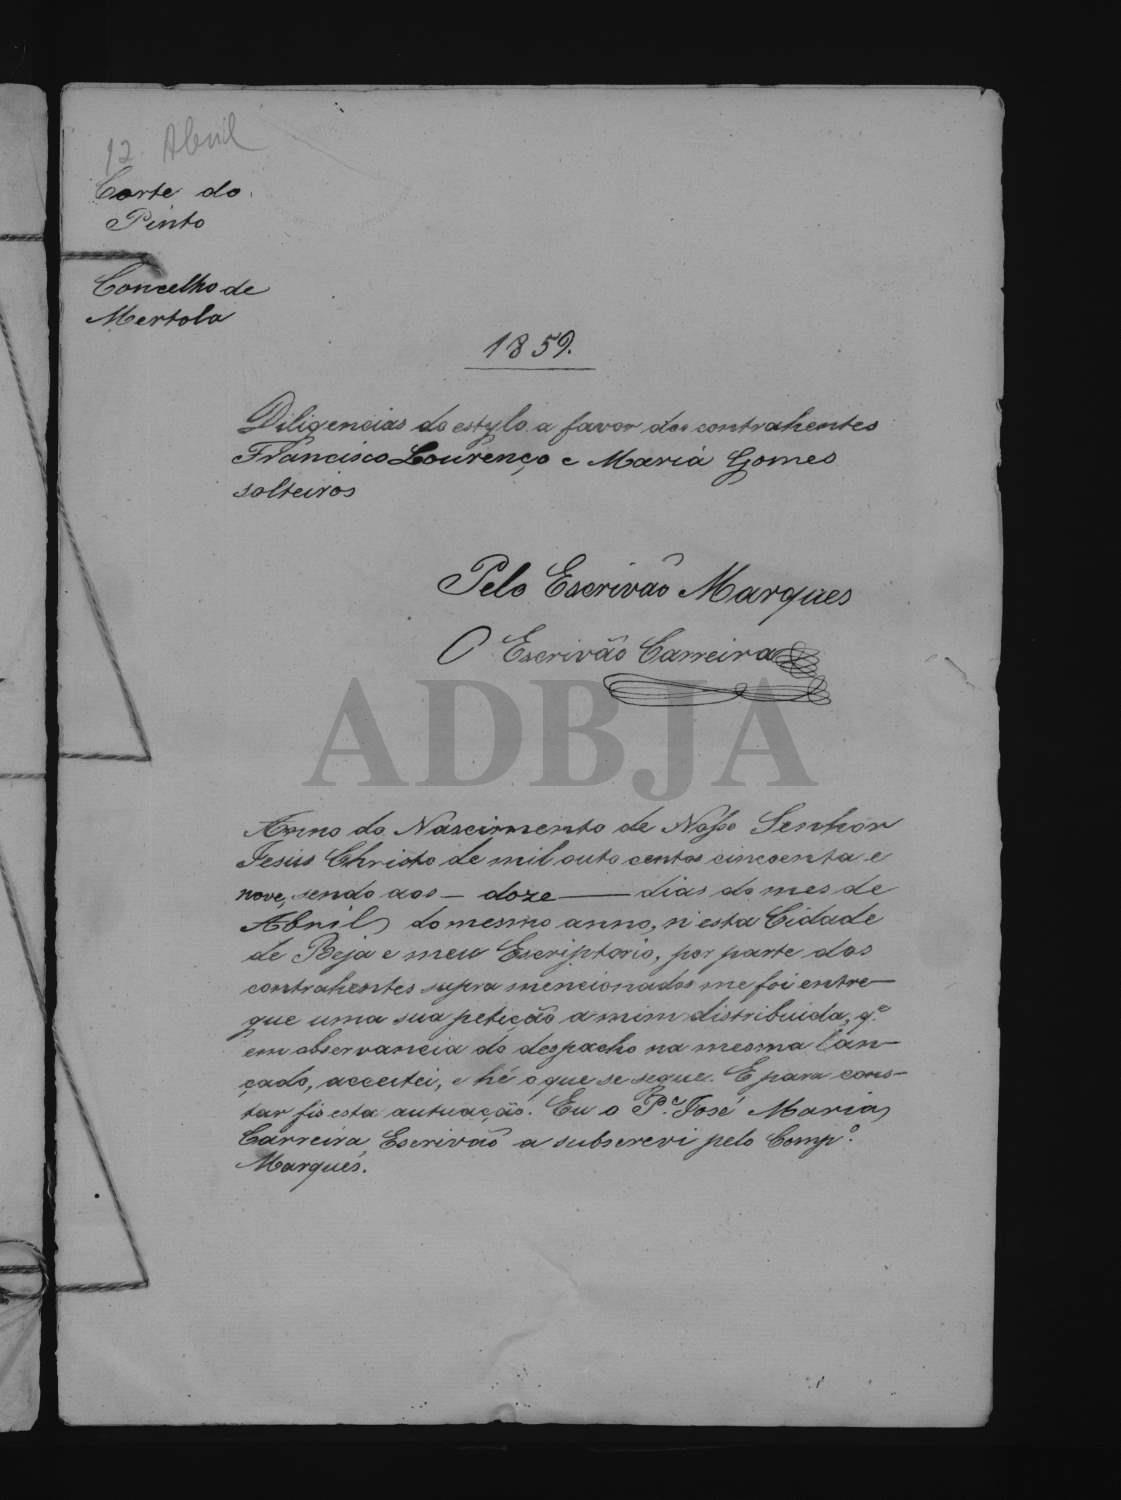 12 Abril
Corte do
Pinto
Concelho de
Mertola
1859.
Diligencias do estylo a favor dos contrahentes
Francisco Lourenço e Maria Gomes
solteiros
Pelo Escrivão Marques
O Escrivão Carreira
ADBJA
Anno do Nascimento de Nosso Senhor
Jesus Christo de mil outo centos cincoenta e
nove, sendo aos - doze - dias do mes de
Abril do mesmo anno, n'esta Cidade
de Beja e meu Escriptorio, por parte dos
contrahentes supra mencionados me foi entre-
gue uma sua petição a mim distribuida, q.e
em observancia do despacho na mesma lan-
çado, acceitei, e hé o que se segue. E para cons-
tar fis esta autuação. Eu o P.e José Maria
Carreira Escrivão a subscrevi pelo Comp.o
Marques.